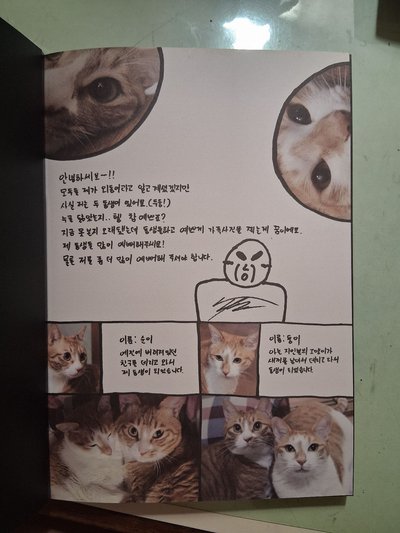 안녕하세요~!!
모두들 제가 외동이라고 알고 계셨겠지만
사실 저는 두 동생이 있어요. (두둥!)
누굴 닮았는지.. 헿 참 예쁘죠?
지금 못본지 오래됐는데 동생들하고 예쁘게 가족사진을 찍는게 꿈이에요.
제 동생들 많이 예뻐해주세요!
물론 저를 좀 더 많이 예뻐해 주셔야 합니다.
이름: 순이
예전에 버려져있던
친구를 데리고 와서
제 동생이 되었습니다.
이름: 둥이
아는 지인분의 고양이가
새끼를 낳아서 데리고 와서
동생이 되었습니다.